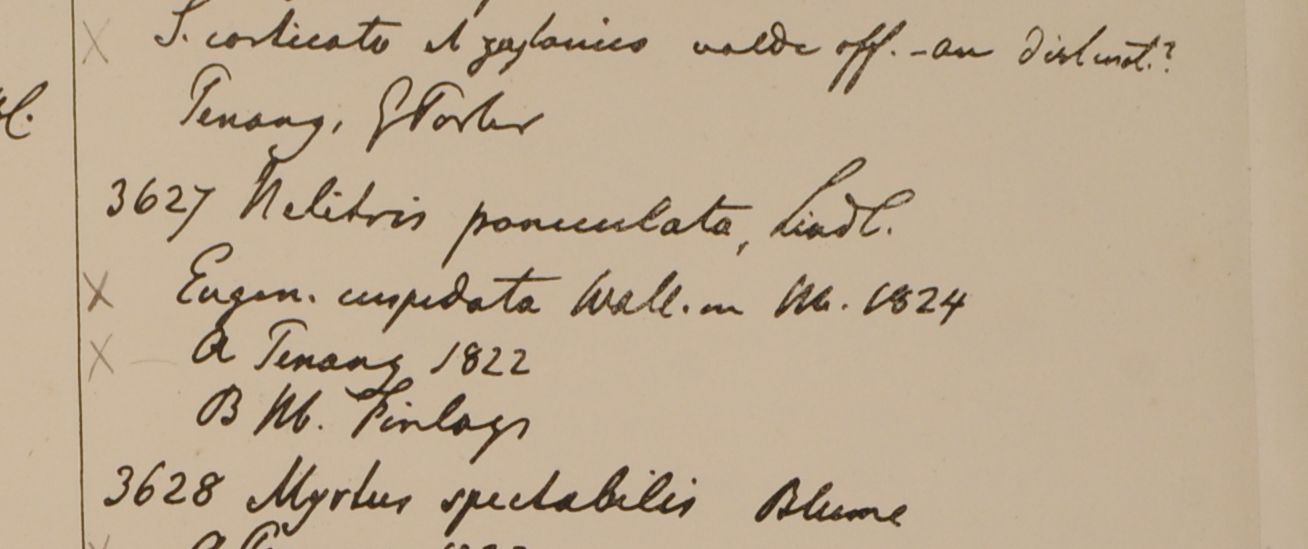 S. corticato et zeylanico valde aff. - an distinct.?
Penang, G Porter
3627 Nelitris paniculata, Lindl.
Eugen. cuspidata Wall. in Hb. 1824
A Penang 1822
B Hb. Finlays
3628 Myrtus spectabilis Blume